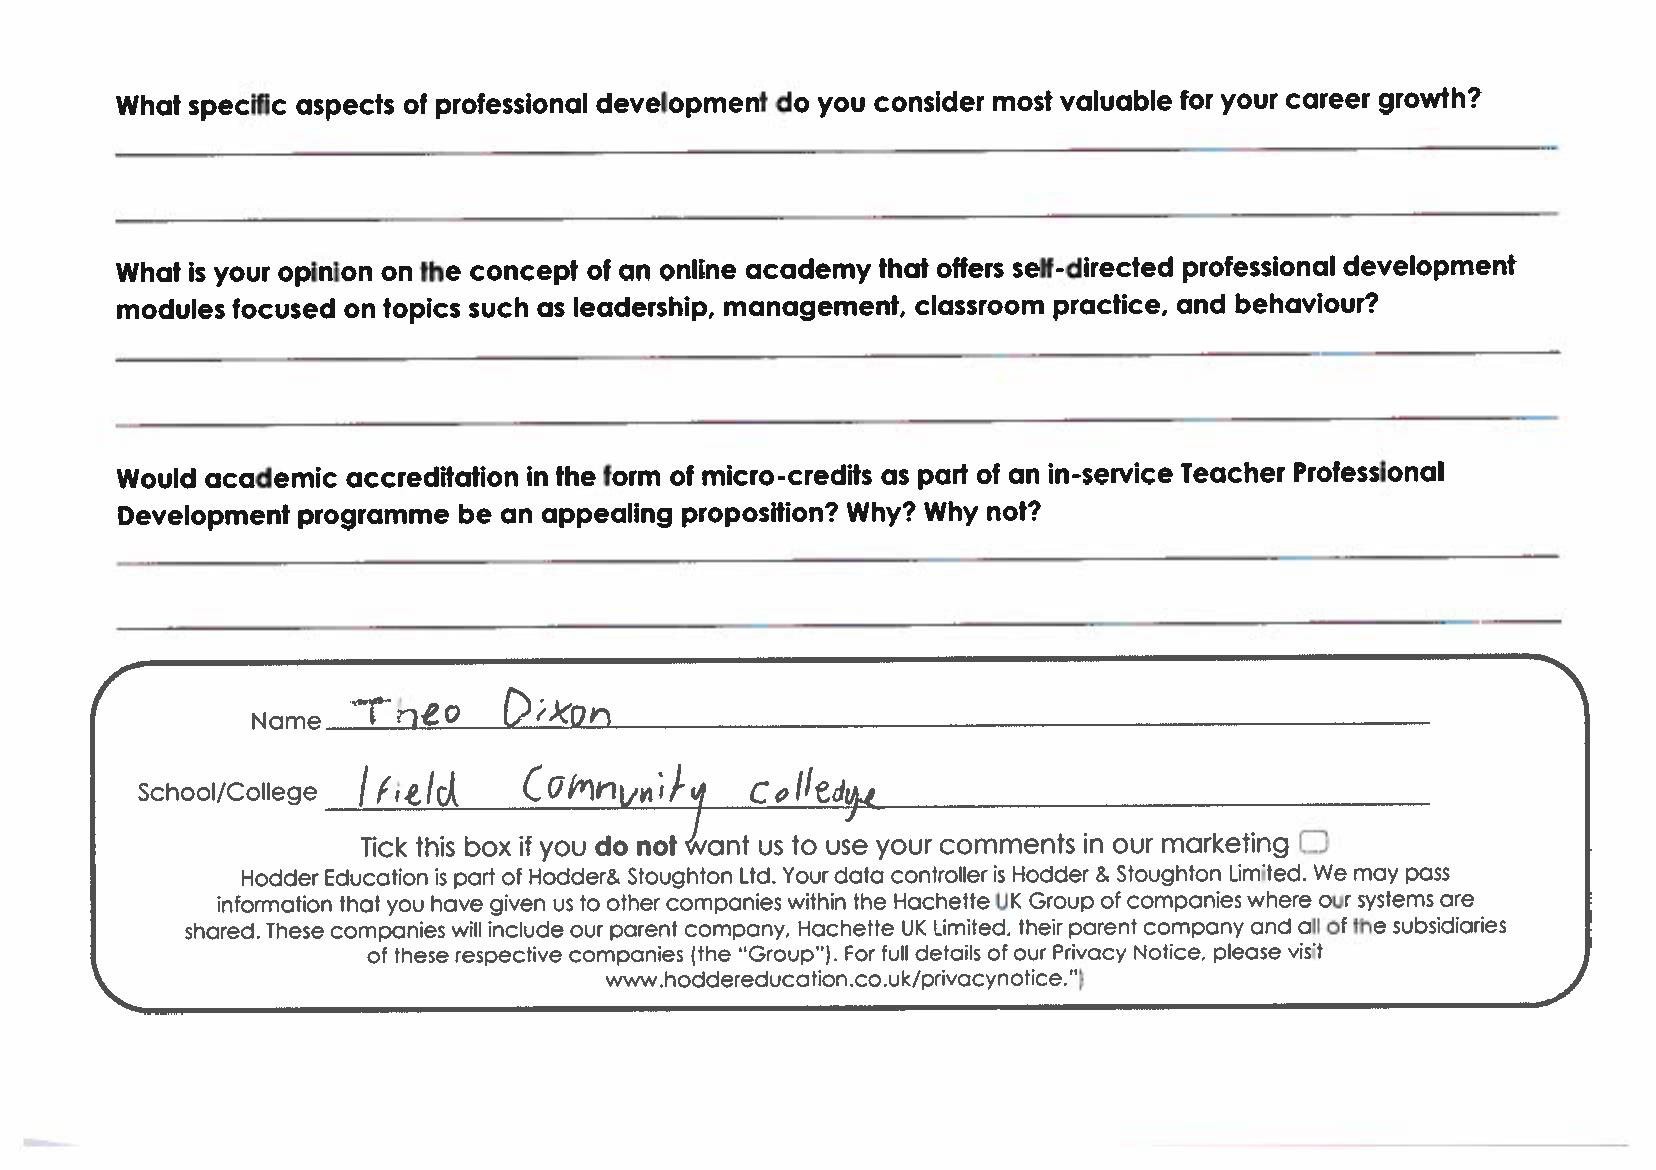 What specific aspects of professional development do you consider most valuable for your career growth?
What is your opinion on the concept of an online academy that offers self-directed professional development
modules focused on topics such as leadership, management, classroom practice, and behaviour?
Would academic accreditation in the form of micro-credits as part of an in-service Teacher Professional
Development programme be an appealing proposition? Why? Why not?
Name Theo Dixon
School/College Ifield Comnunity colledge
Tick this box if you do not want us to use your comments in our marketing
Hodder Education is part of Hodder& Stoughton Ltd. Your data controller is Hodder & Stoughton Limited. We may pass
information that you have given us to other companies within the Hachette UK Group of companies where our systems are
shared. These companies will include our parent company, Hachette UK Limited, their parent company and all of the subsidiaries
of these respective companies (the "Group"). For full details of our Privacy Notice, please visit
www.hoddereducation.co.uk/privacynotice.")